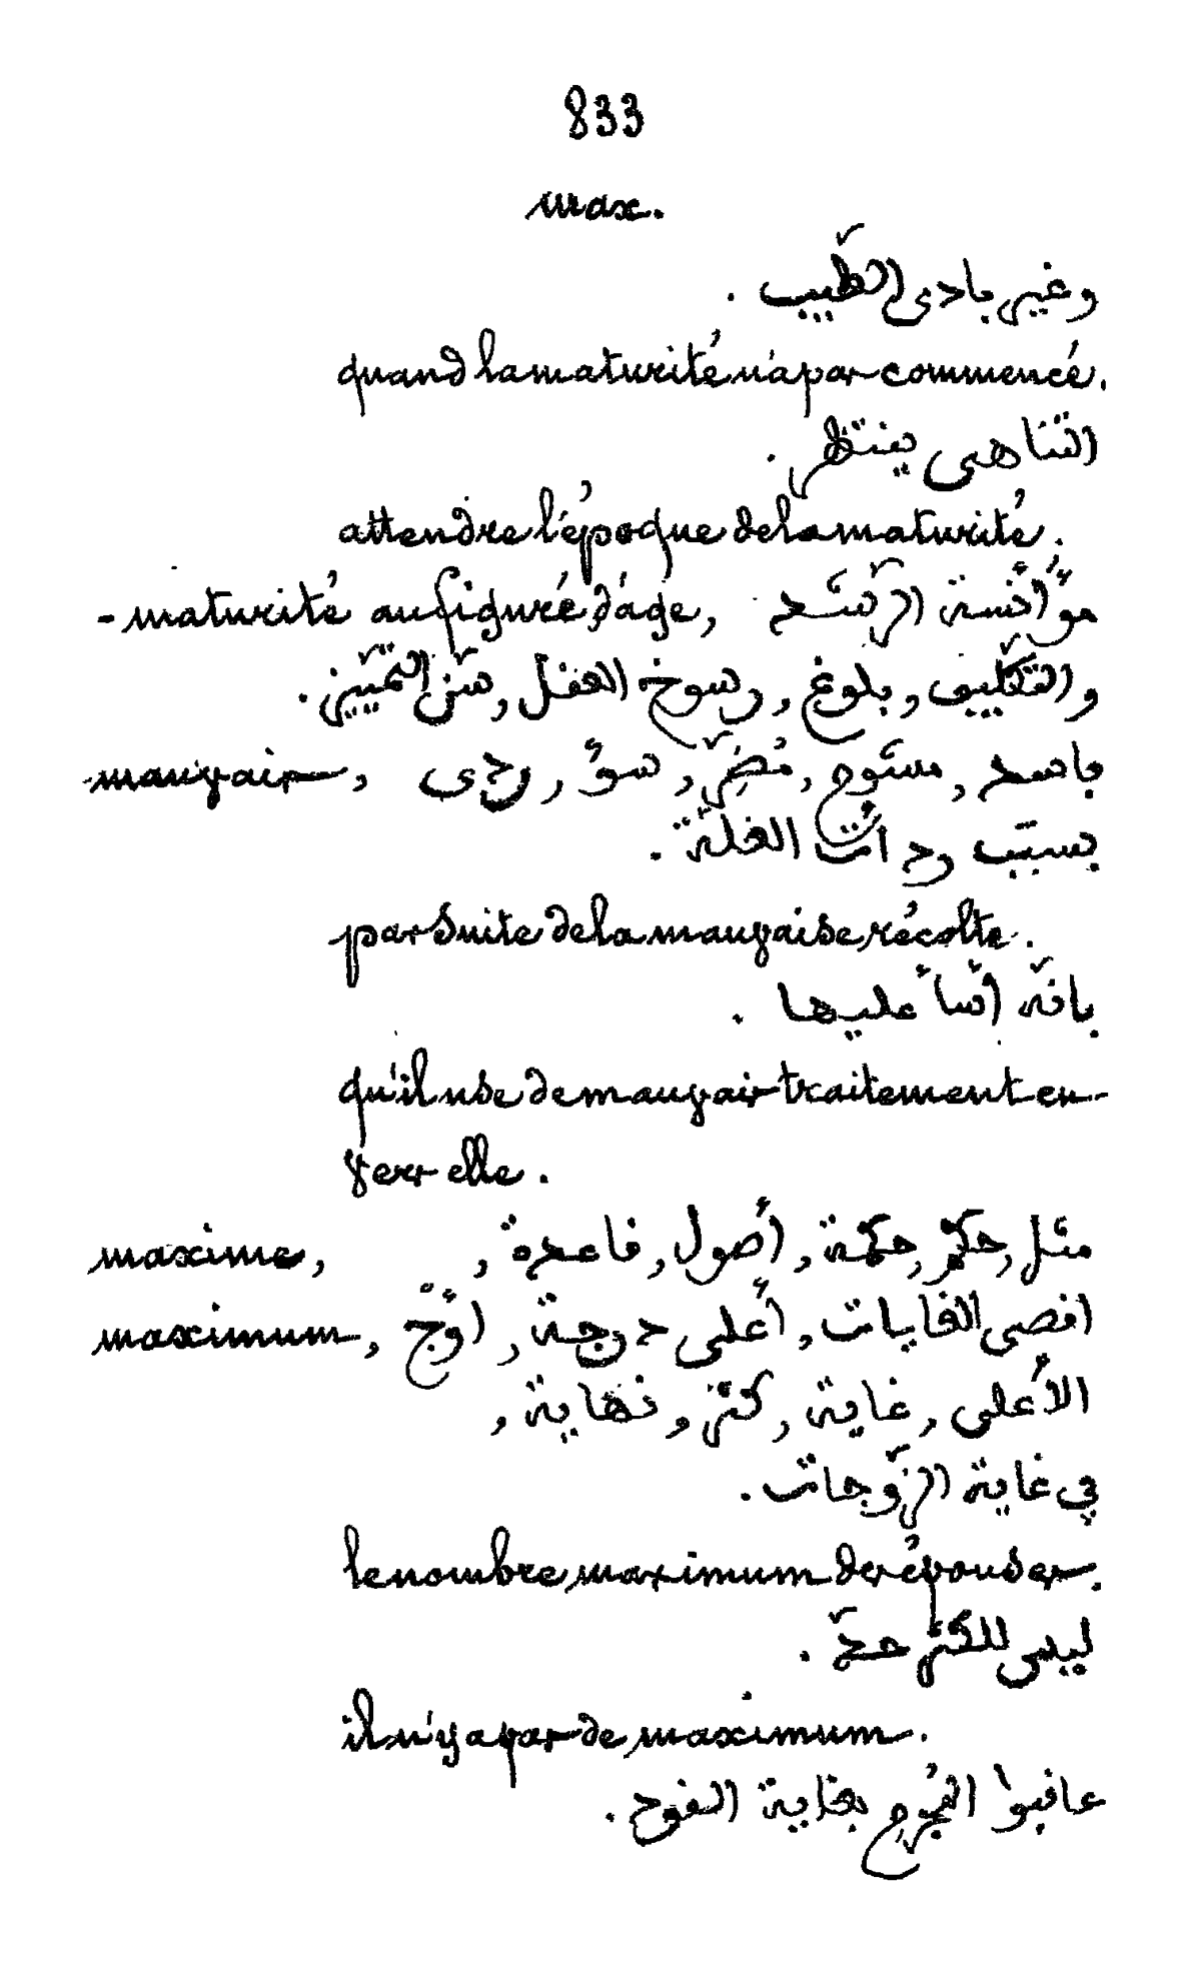 833
max.
وغير بادى الطّيب .
quand la maturité n'a pas commencé.
التناهى ينتظر .
attendre l'époque de la maturité.
- maturité au figuré, d'âge, مؤانسة الرّشد
والتكّليف, بلوغ, رسوخ العقل, سنّ التّمييز .
mauvais, فاسد, مسّوح, مُضِرّ, سوؤ, ردى
بسبب ردأت الغلّة .
par suite de la mauvaise récolte.
بانّه اسّأ عليها .
qu'il use de mauvais traitement en-
vers elle.
maxime, مثل, حكم, حكمة, أصول, قاعدة,
maximum, اقصى الغايات, أعلى درجة, اوْج
الأعلى, غاية, كثر, نهاية,
في غاية الزّوجات .
le nombre maximum des épouses.
ليس للكثر حدّ .
il n'y a pas de maximum.
عاقبوا المُجرم بغاية القود .